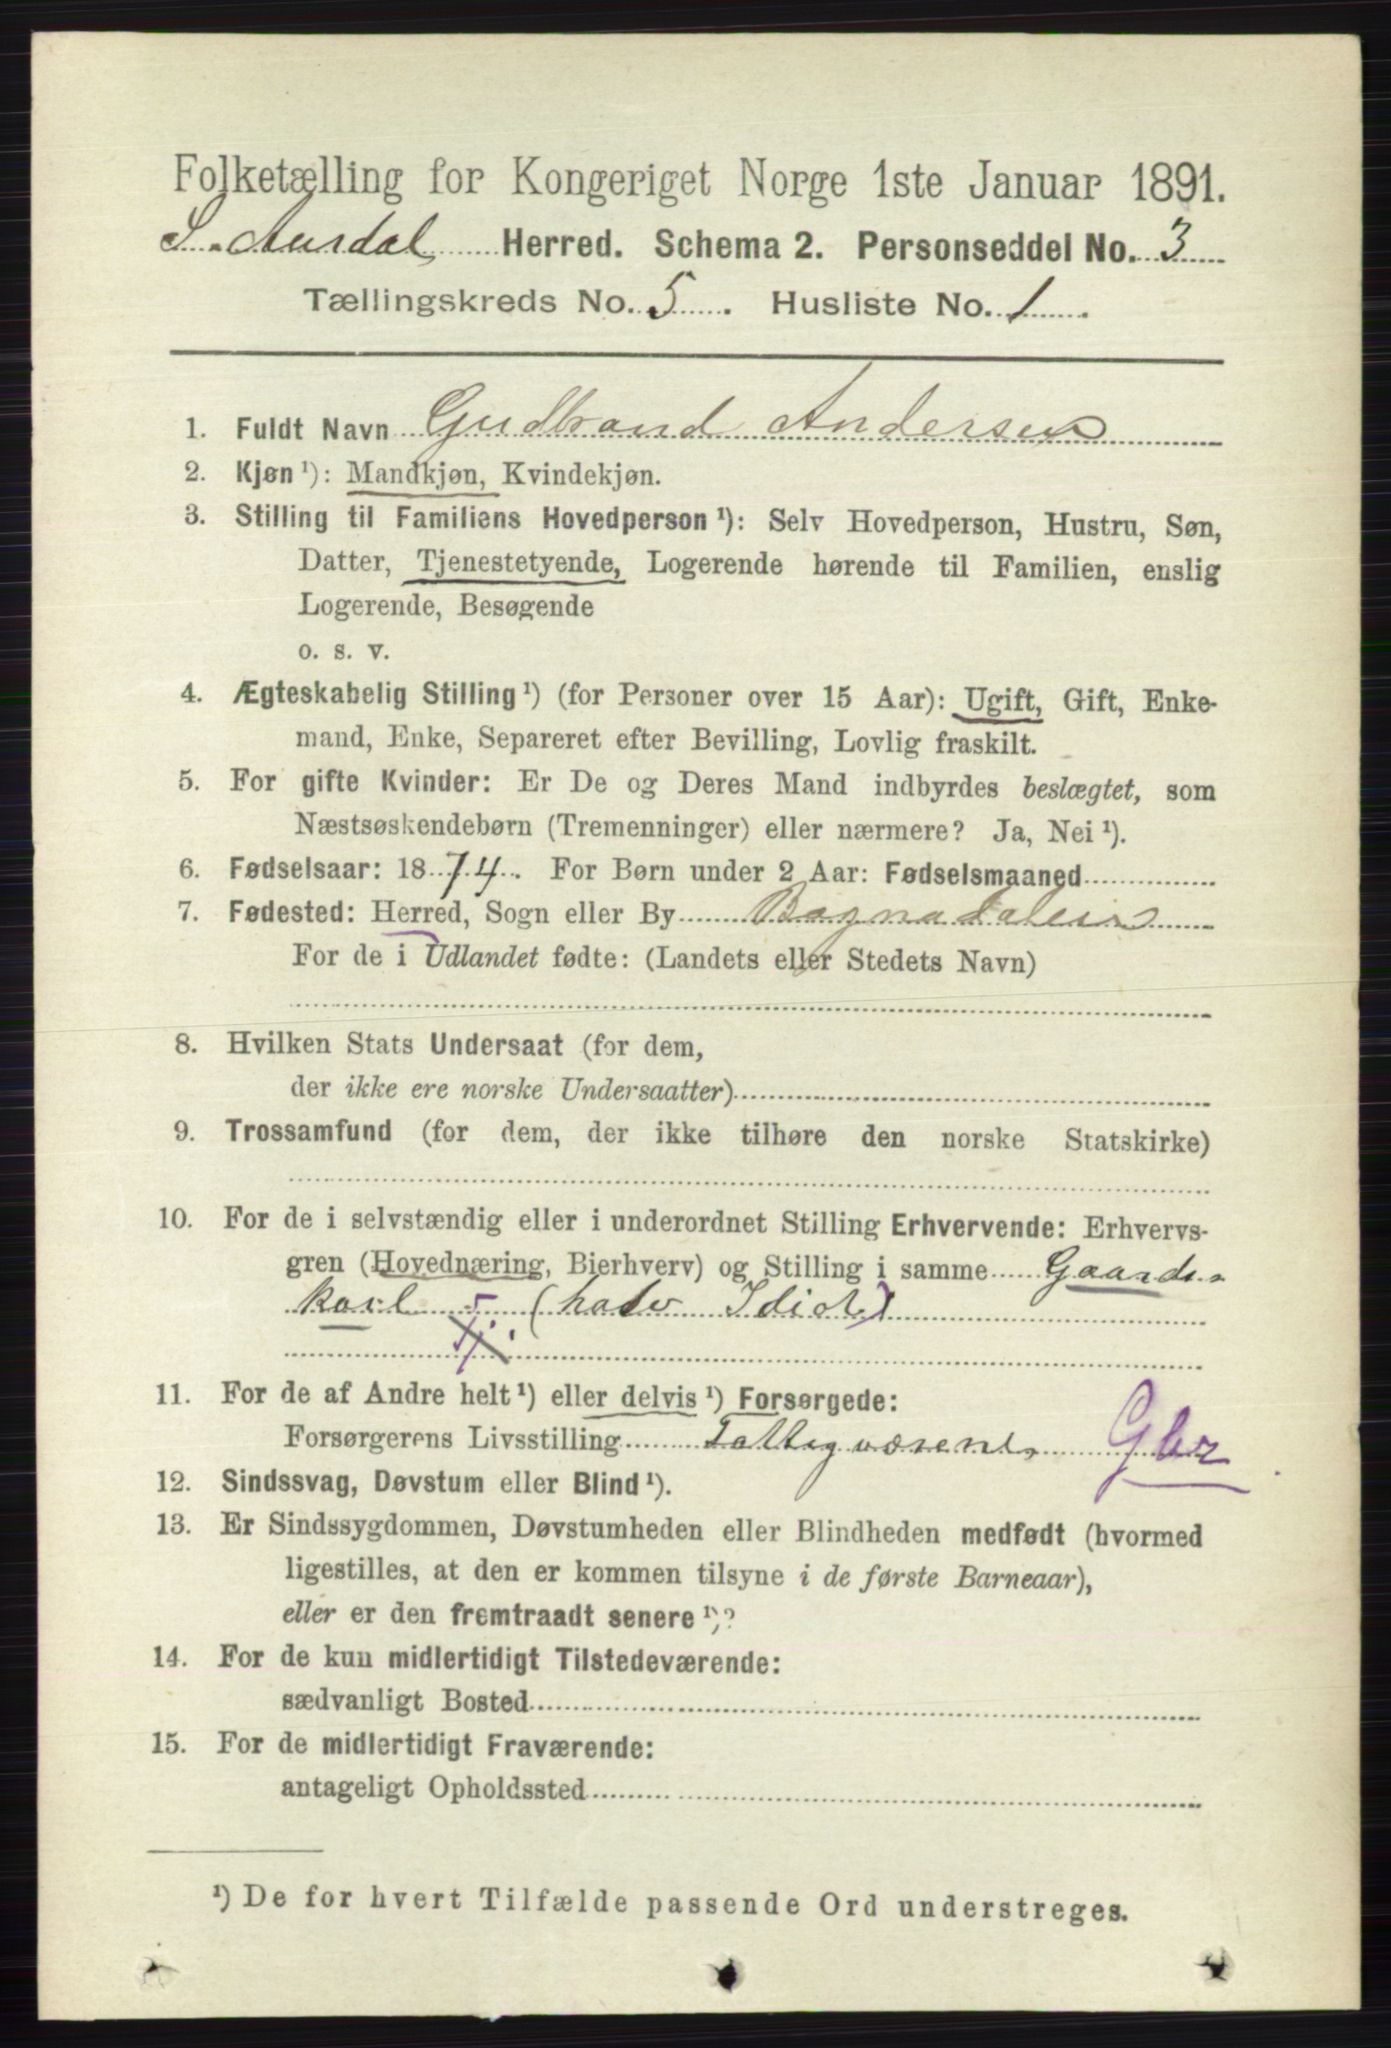 Folketælling for Kongeriget Norge 1ste Januar 1891.
S. Aurdal Herred. Schema 2. Personseddel No. 3
Tællingskreds No. 5. Husliste No. 1
1. Fuldt Navn Gudbrand Andersen
2. Kjøn ¹): Mandkjøn, Kvindekjøn.
3. Stilling til Familiens Hovedperson ¹): Selv Hovedperson, Hustru, Søn,
Datter, Tjenestetyende, Logerende hørende til Familien, enslig
Logerende, Besøgende
o. s. v.
4. Ægteskabelig Stilling ¹) (for Personer over 15 Aar): Ugift, Gift, Enke-
mand, Enke, Separeret efter Bevilling, Lovlig fraskilt.
5. For gifte Kvinder: Er De og Deres Mand indbyrdes beslægtet, som
Næstsøskendebørn (Tremenninger) eller nærmere? Ja, Nei ¹).
6. Fødselsaar: 1874. For Børn under 2 Aar: Fødselsmaaned
7. Fødested: Herred, Sogn eller By Bagnadalen
For de i Udlandet fødte: (Landets eller Stedets Navn)
8. Hvilken Stats Undersaat (for dem,
der ikke ere norske Undersaatter)
9. Trossamfund (for dem, der ikke tilhøre den norske Statskirke)
10. For de i selvstændig eller i underordnet Stilling Erhvervende: Erhvervs-
gren (Hovednæring, Bierhverv) og Stilling i samme Gaards-
karl (halv Idiot)
11. For de af Andre helt ¹) eller delvis ¹) Forsørgede:
Forsørgerens Livsstilling Fattigvæsenet
12. Sindssvag, Døvstum eller Blind ¹).
13. Er Sindssygdommen, Døvstumheden eller Blindheden medfødt (hvormed
ligestilles, at den er kommen tilsyne i de første Barneaar),
eller er den fremtraadt senere ¹)?
14. For de kun midlertidigt Tilstedeværende:
sædvanligt Bosted
15. For de midlertidigt Fraværende:
antageligt Opholdssted
¹) De for hvert Tilfælde passende Ord understreges.